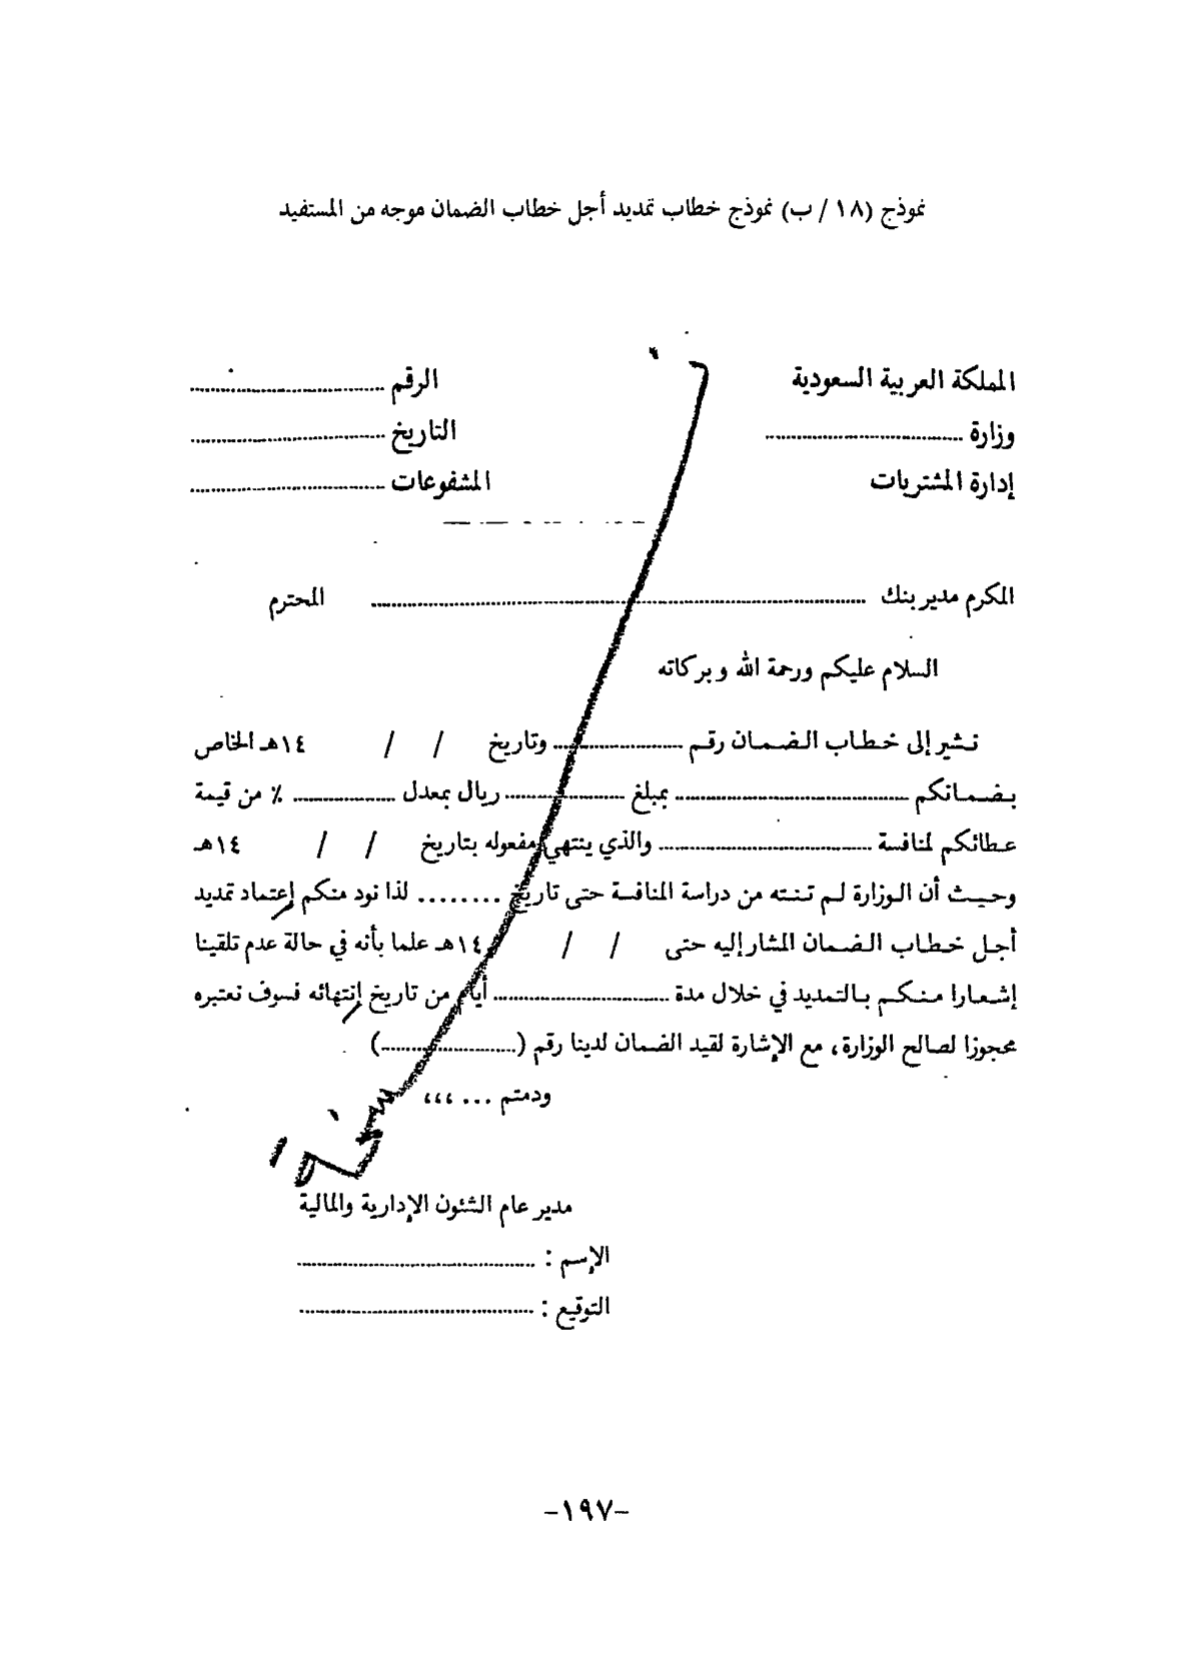 نموذج (١٨ / ب) نموذج خطاب تمديد أجل خطاب الضمان موجه من المستفيد
المملكة العربية السعودية
الرقم ........................
وزارة ........................
التاريخ ........................
إدارة المشتريات
المشفوعات ........................
المكرم مدير بنك ........................ المحترم
السلام عليكم ورحمة الله وبركاته
نشير إلى خطاب الضمان رقم ................ وتاريخ / / ١٤هـ الخاص
بضمانكم ........................ بمبلغ ................ ريال بمعدل ............ ٪ من قيمة
عطائكم لمنافسة ........................ والذي ينتهي مفعوله بتاريخ / / ١٤هـ
وحيث أن الوزارة لم تنته من دراسة المنافسة حتى تاريخ ........ لذا نود منكم إعتماد تمديد
أجل خطاب الضمان المشار إليه حتى / / ١٤هـ علما بأنه في حالة عدم تلقينا
إشعارا منكم بالتمديد في خلال مدة ........................ أيام من تاريخ إنتهائه فسوف نعتبره
محجوزا لصالح الوزارة، مع الإشارة لقيد الضمان لدينا رقم (................)
ودمتم ... ،،،
مدير عام الشئون الإدارية والمالية
الإسم : ........................
التوقيع : ........................
-١٩٧-